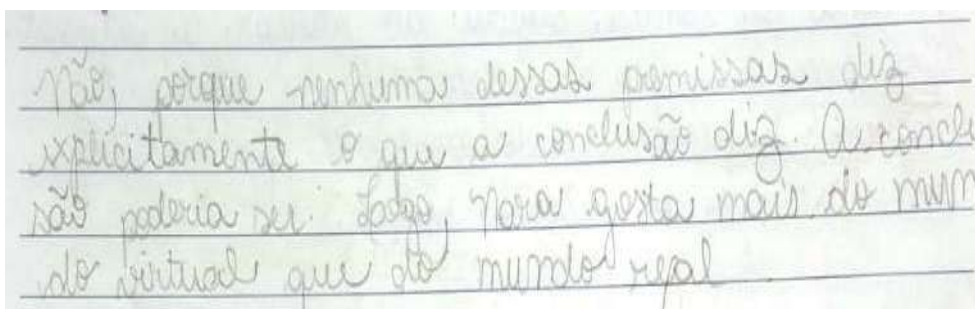 Não, porque nenhuma dessas premissas diz
explicitamente o que a conclusão diz. A conclu
são poderia ser: Logo, Nara gosta mais do mun
do virtual que do mundo real.